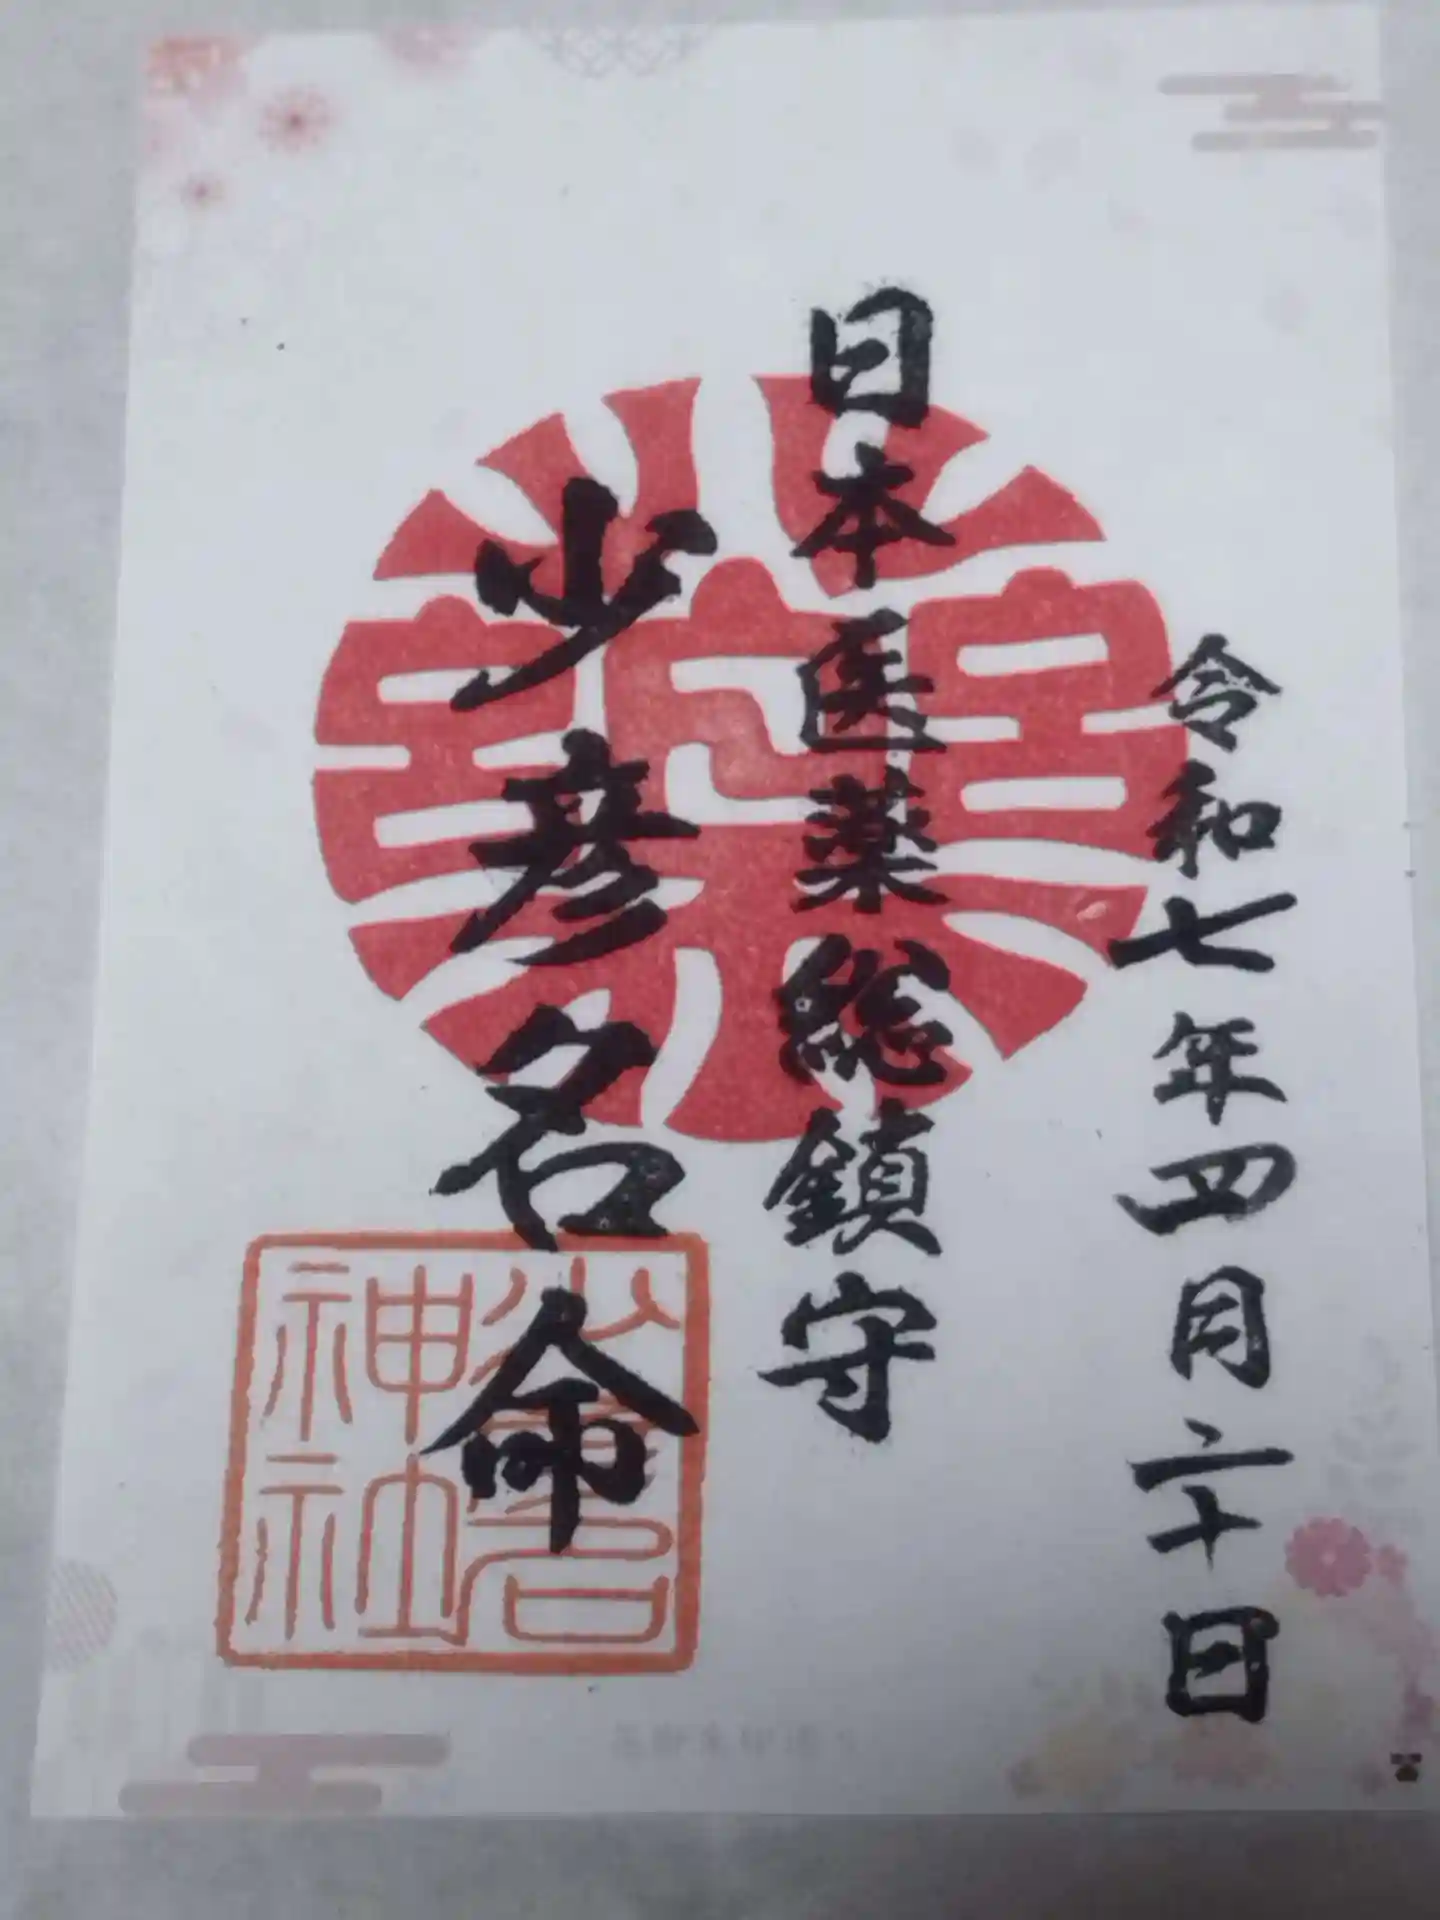 令和七年四月二十日
日本医薬総鎮守
少彦名命
少彦名
神社